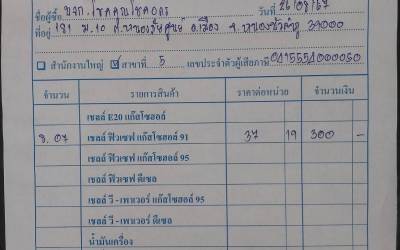 ชื่อผู้ซื้อ บจก. โชคคูณโชคอุดร วันที่ 26/08/67
ที่อยู่ 181 ม.10 ต.หนองบัว อ.เมือง จ.หนองบัวลำภู 39000
สำนักงานใหญ่ ☑ สาขาที่ 5 เลขประจำตัวผู้เสียภาษี 0415554000050
จำนวน รายการสินค้า ราคาต่อหน่วย จำนวนเงิน
เชลล์ E20 แก๊สโซฮอล์
8.07 เชลล์ ฟิวเซฟ แก๊สโซฮอล์ 91 37 19 300 –
เชลล์ ฟิวเซฟ แก๊สโซฮอล์ 95
เชลล์ ฟิวเซฟ ดีเซล
เชลล์ วี - เพาเวอร์ แก๊สโซฮอล์ 95
เชลล์ วี - เพาเวอร์ ดีเซล
น้ำมันเครื่อง